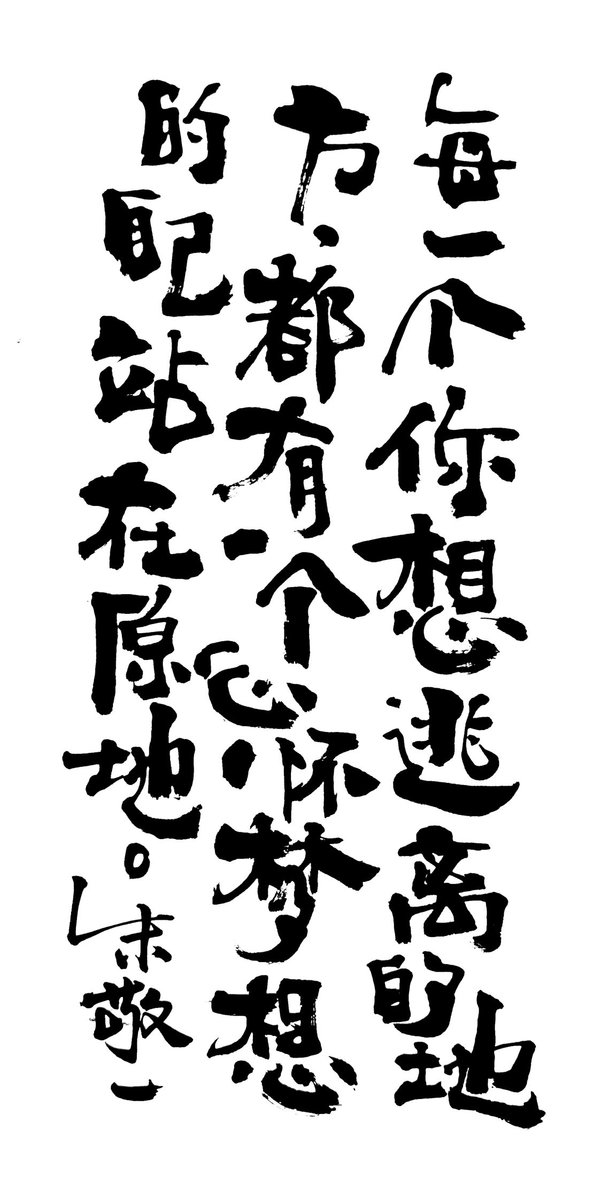 每一个你想逃离的地
方、都有一个心怀梦想
的自己站在原地。朱敬一